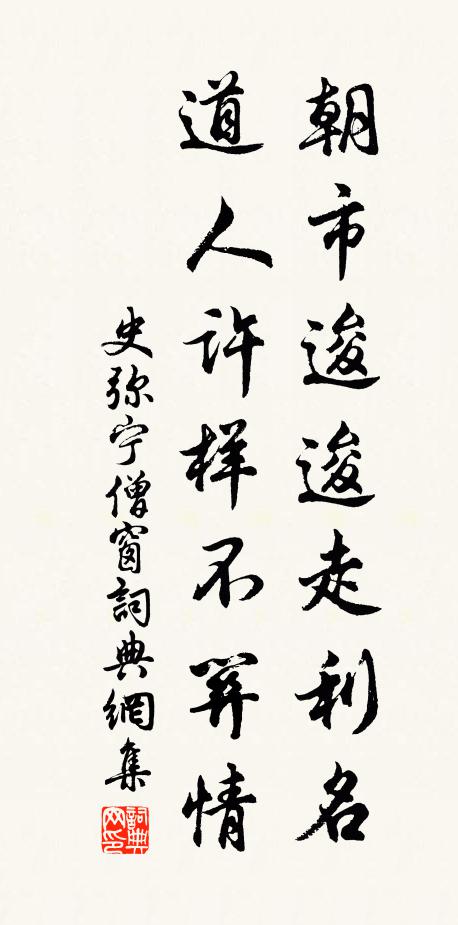 朝市逡逡走利名
道人许样不关情
史弥宁僧窗詞典網集
詞典网印